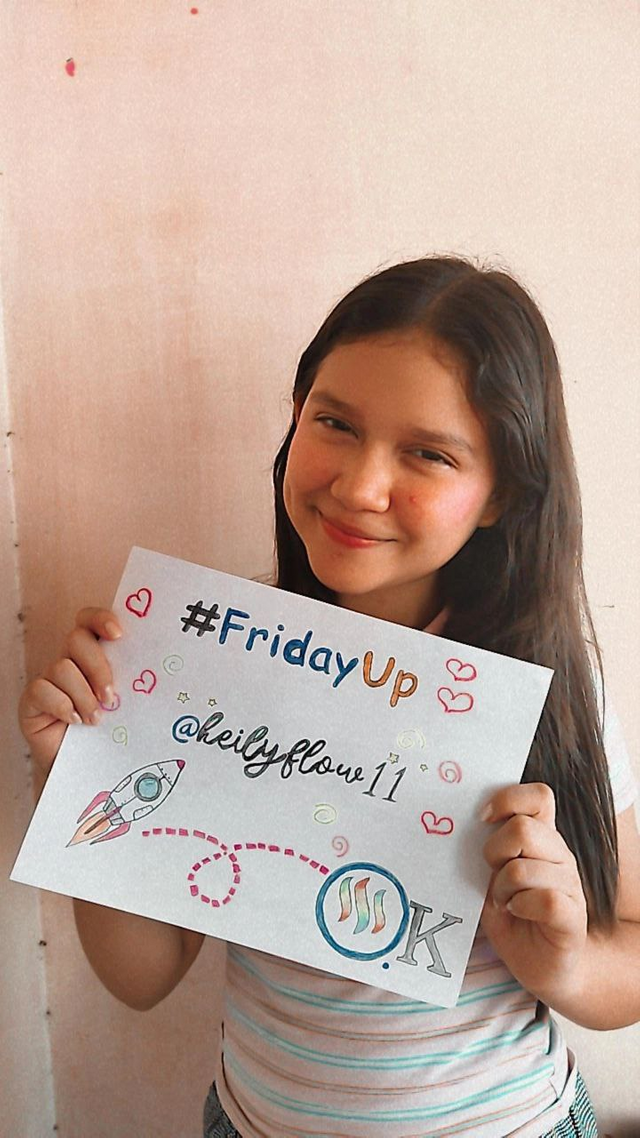 #FridayUp
@heilyflow11
K